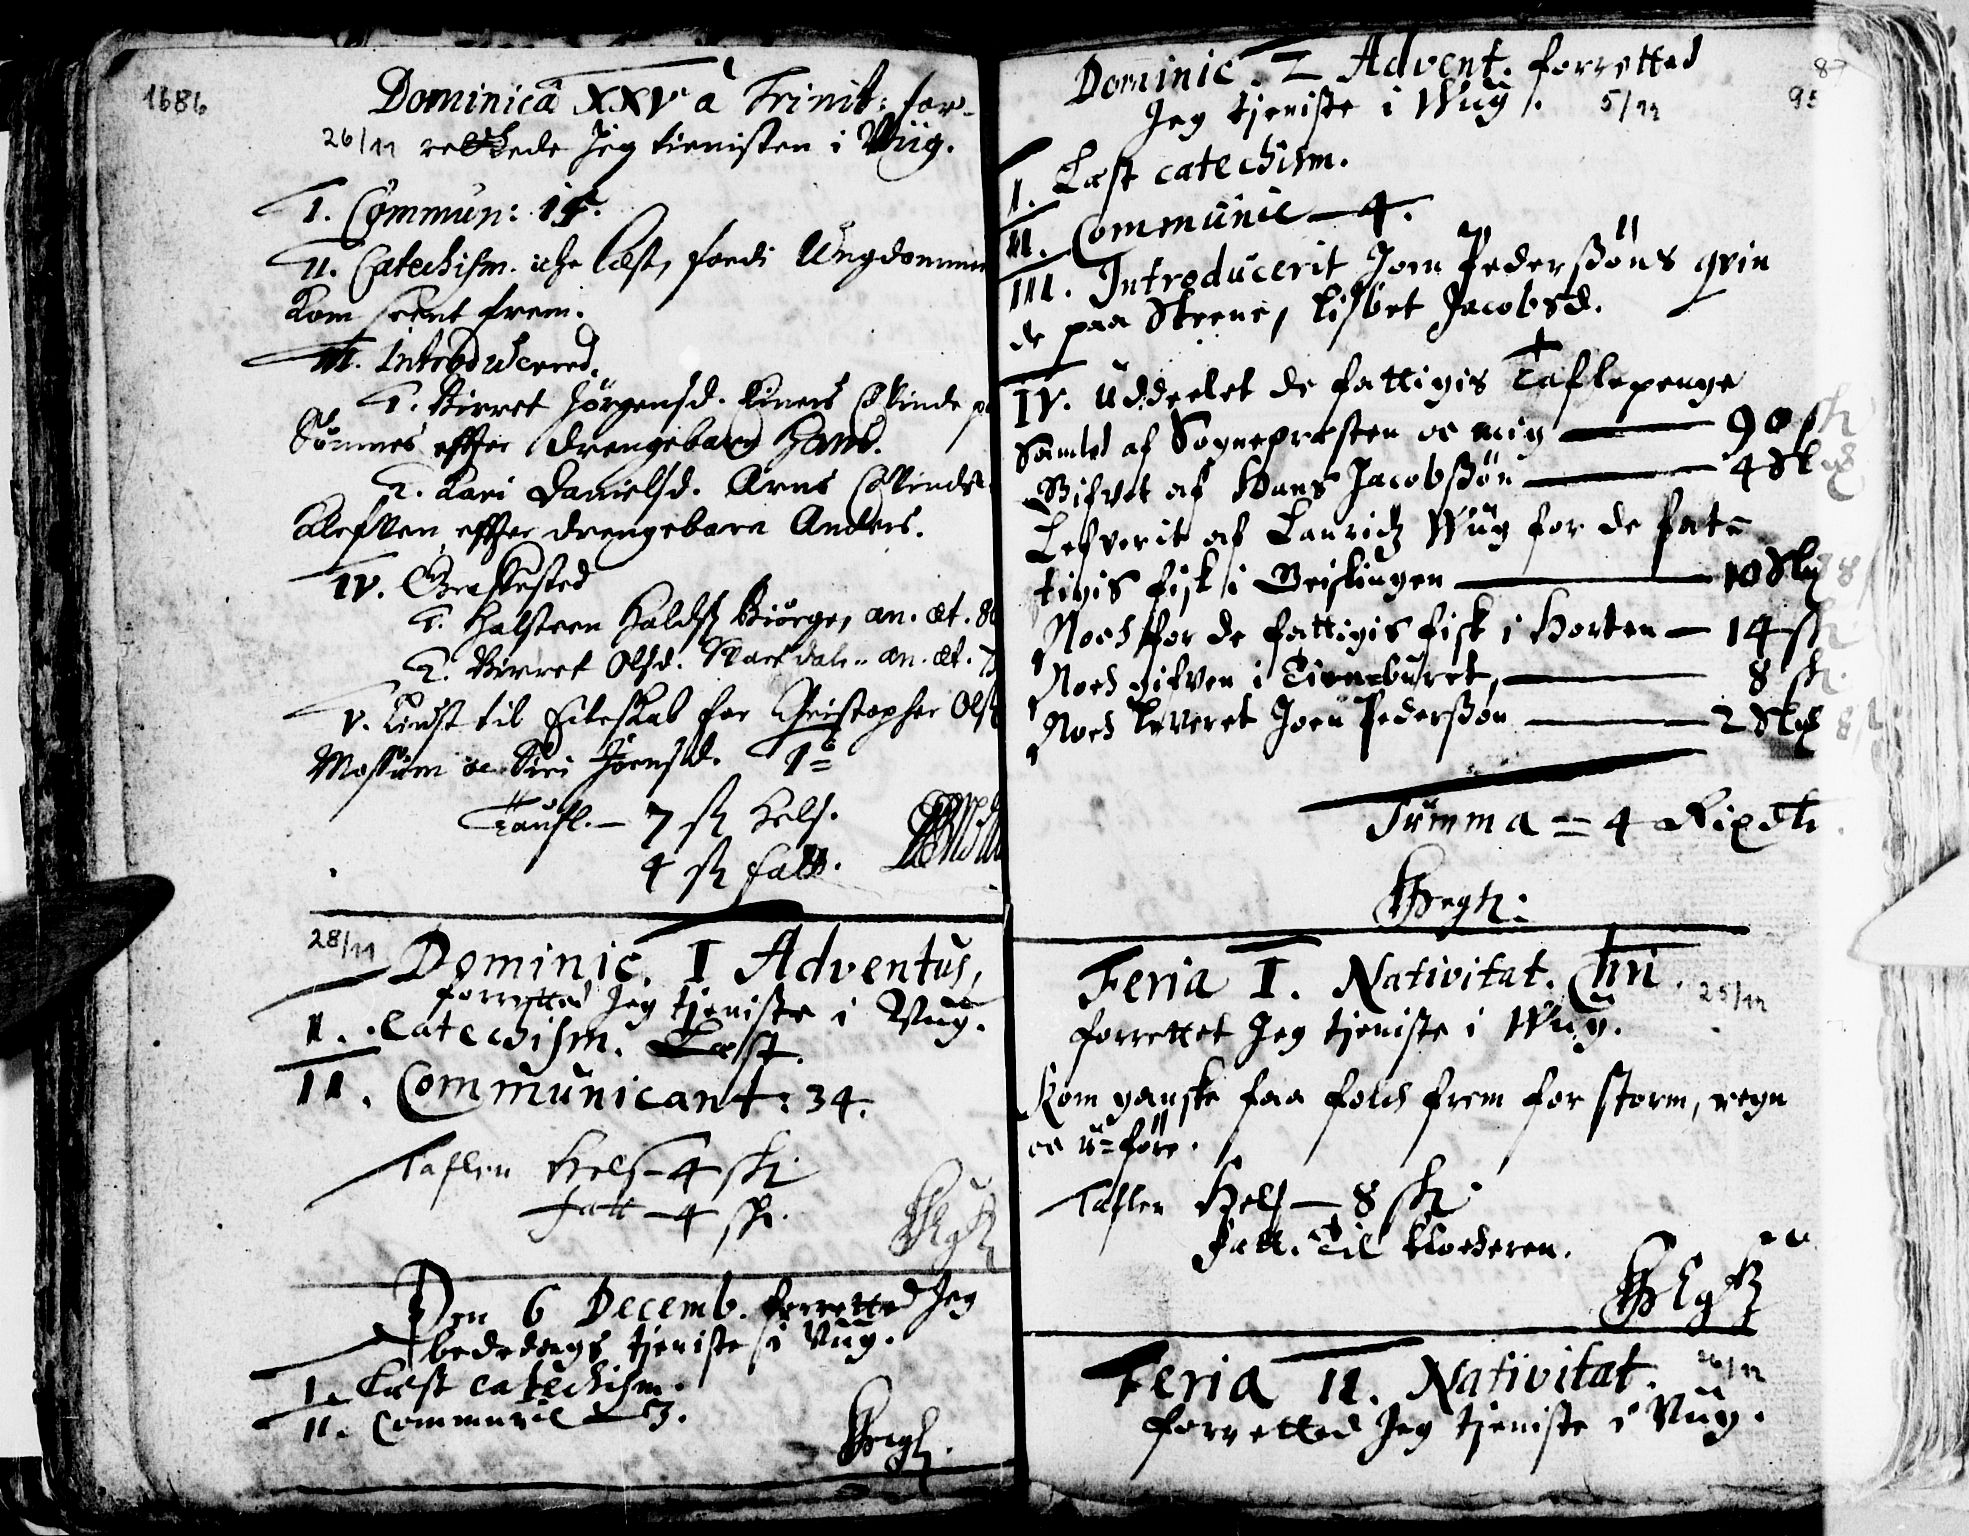 1686
Dominicâ XXV à Trinit: for-
26/11 rettede Jeg tienisten i Viig.
I. Commun: 14.
II. Catechism. iche læst, fordi Ungdommen
Kom seent frem.
III. Introducered.
1. Birret Jörgensd. Einers Qvinde
Sömnes effter drengebarn Hans.
2. Kari Danielsd. Arns Qvinde
Klefven, effter drengebarn Anders.
IV. Graffested
1. Halsteen Biörge, an. æt. 8
2. Birret Olsd. an. æt. 7
V. Liust til Ecteskab for Christopher Ols
Mossum oc Siri Joensd. 1
Taufl. — 7 sk Kels.
4 sk fatt.
28/11 Dominic. I Adventus,
forretted Jeg tjeniste i Viig.
I. Catechism. Læst.
II. Communicant: 34.
Taflen Kels — 4 sk
fatt — 4 sk.
Den 6 Decemb. forretted Jeg
bededags tjeniste i Viig.
I. Læst catechism.
II. Communic — 3.
87
95
Dominic. 2 Advent. forretted
Jeg tjeniste i Wiig. 5/12
I. Læst catechism.
II. Communic — 4.
III. Introducerit Jom Pederssöns qvin
de paa Steene, Lisbet Jacobsd.
IV. Uddeelet de fattigis Taflepenge
Samlet af Sognepresten oc mig — 90 sk
Gifvet af Hans Jacobssön — 4 sk
Lefverit af Lauridz Wiig for de fat-
tigis fisk i Geislingen — 10
Noch for de fattigis fisk i Horten — 14 sk
Noch gifven i — 8 sk.
Noch leveret Joen Pederssön — 2
Summa = 4 Rixdlr
Feria I. Nativitat. Chri. 25/12
forrettet Jeg tjeniste i Wiig.
Kom ganske faa folch frem for storm, regn
oc u-före.
Taflen Kels — 8 sk
Fatt. Til klockeren.
Feria II. Nativitat. 26/12
forretted Jeg tjeniste i Viig.